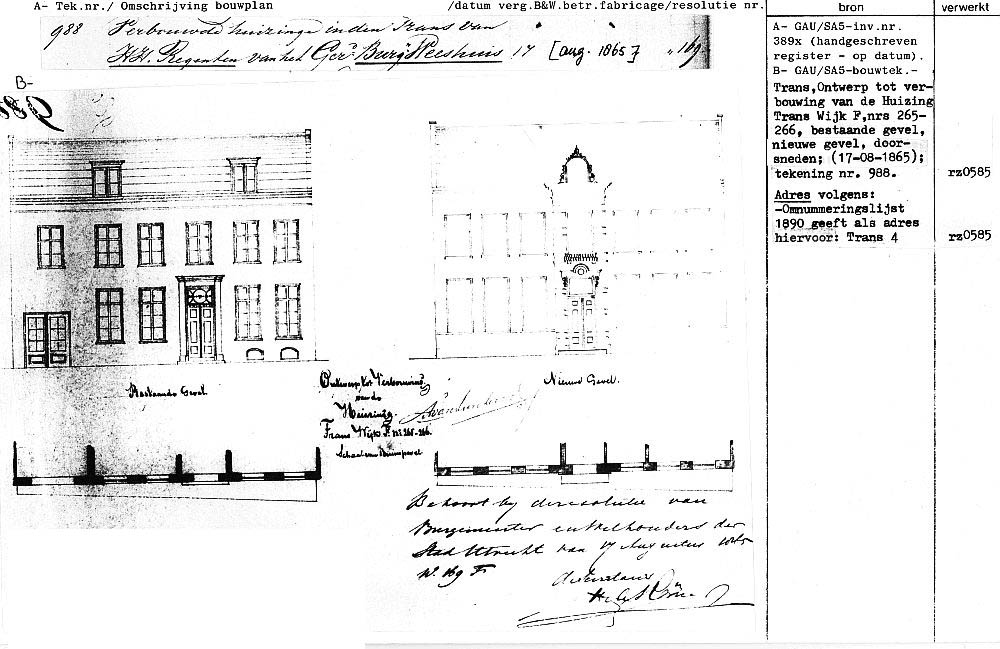 A- Tek.nr./ Omschrijving bouwplan /datum verg.B&W.betr.fabricage/resolutie nr. bron verwerkt
988 Verbouwde huizinge in den Trans van
H.H. Regenten van het Ger. Burg. Weeshuis 17 [aug. 1865] 169.
B-
988
A- GAU/SA5-inv.nr.
389x (handgeschreven
register - op datum).
B- GAU/SA5-bouwtek.-
Trans,Ontwerp tot ver-
bouwing van de Huizing
Trans Wijk F,nrs 265-
266, bestaande gevel,
nieuwe gevel, door-
sneden; (17-08-1865);
tekening nr. 988. rz0585
Adres volgens:
-Omnummeringslijst
1890 geeft als adres
hiervoor: Trans 4 rz0585
Bestaande Gevel
Ontwerp tot Verbouwing
van de
Huizing.
Trans Wijk F. No 265-266.
Nieuwe Gevel.
Behoort bij de resolutie van
Burgemeester en Wethouders der
Stad Utrecht van 17 Augustus 1865
No. 169 F
de Secretaris